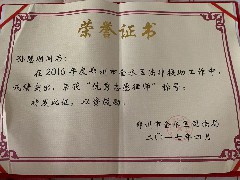 荣誉证书
同志:
在2016年度郑州市金水区法律援助工作中,
成绩突出,荣获“优秀志愿律师”称号。
特发此证,以资鼓励。
郑州市金水区司法局
二〇一七年四月